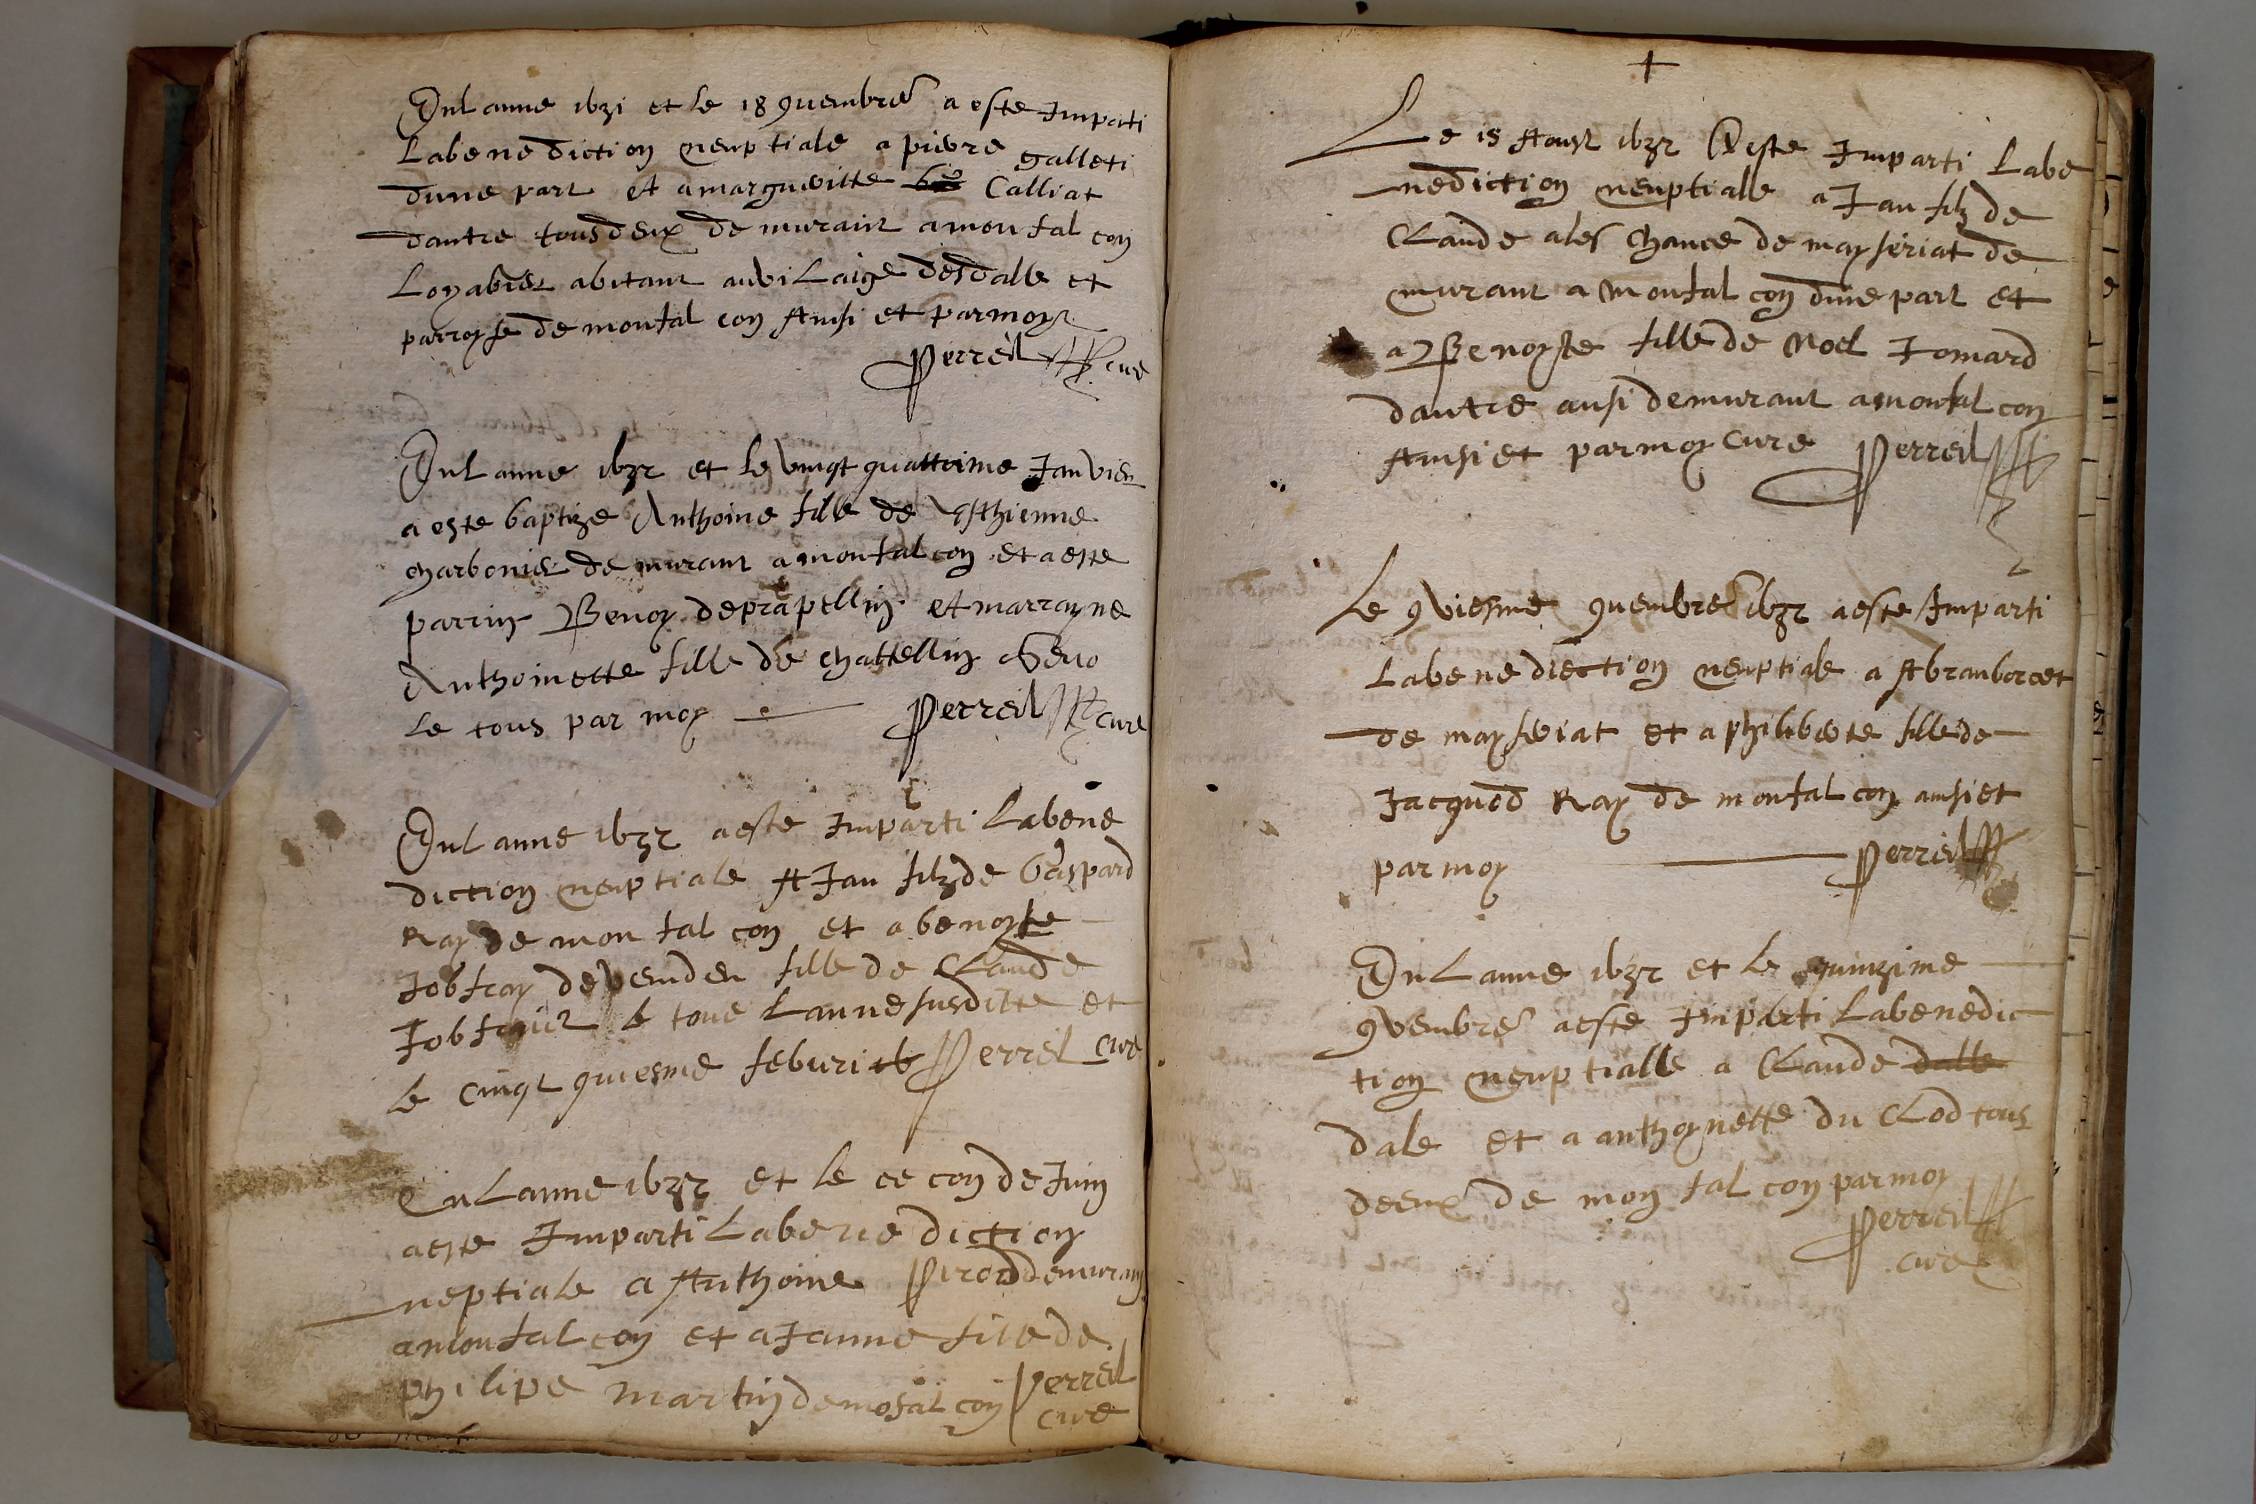 En lanne 1631 et le 18 9uembre a este Imparti
La benediction neuptiale a pierre galleti
dune part et a margueritte Calliat
dautre tous deux demurant a montalcon
Loyabier abitant au vilaige desdalle et
parroyse de montalcon Ainsi et par moy
Perreil cure
En Lanne 1632 et le vingt quattrime Janvier
a este baptize Anthoine fille de Esthienne
charbonier demurant a montalcon et a este
parrin Benoy de prapellin et marrayne
Anthoinette fille de chattellin
le tous par moy Perreil cure
En lanne 1632 a este Imparti La bene
diction neuptiale A Jan filz de Gaspard
Ray de montalcon et a benoyte
Jobfray de fille de Claude
le tout Lanne susditte et
le cinqt quiesme feburié Perreil cure
En Lanne 1632 et le cecon de Juin
a este Imparti La benediction
neptiale a Anthoine Piroud demurant
a montalcon et a Janne fille de
philipe martin de mofalcon Perreil
cure
+
Le 15 Aoust 1632 A este Imparti La be
nediction neuptialle a Jan filz de
Claude ales Chance de mayseriat de
murant a montalcon dune part et
a Benoyste fille de Noel Jomard
dautre ausi demurant a montalcon
Ainsi et par moy cure Perreil
Le 9viesme 9uembre 1632 a este Imparti
La benediection neuptiale a Abran borcet
de mayseriat et a philiberte fille de
Jacquod Ray de montalcon ainsi et
par moy Perreil
En Lanne 1632 et le quinzime
9vembre a este Imparti La benedic
tion neuptialle a Claude dalle
dale et a anthoynette du Clod tous
deeux de montalcon par moy
Perreil
cure